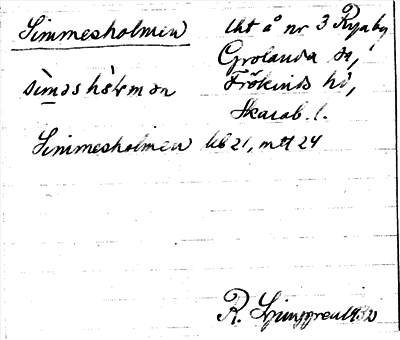 Simmesholmen
tht å nr 3 Ryaby
Grolanda sn,
Frökinds hd,
Skarab. l.
sìməshɑ̀lmən
Simmesholmen lb 21, mtt 24
R. Ljunggren 1930